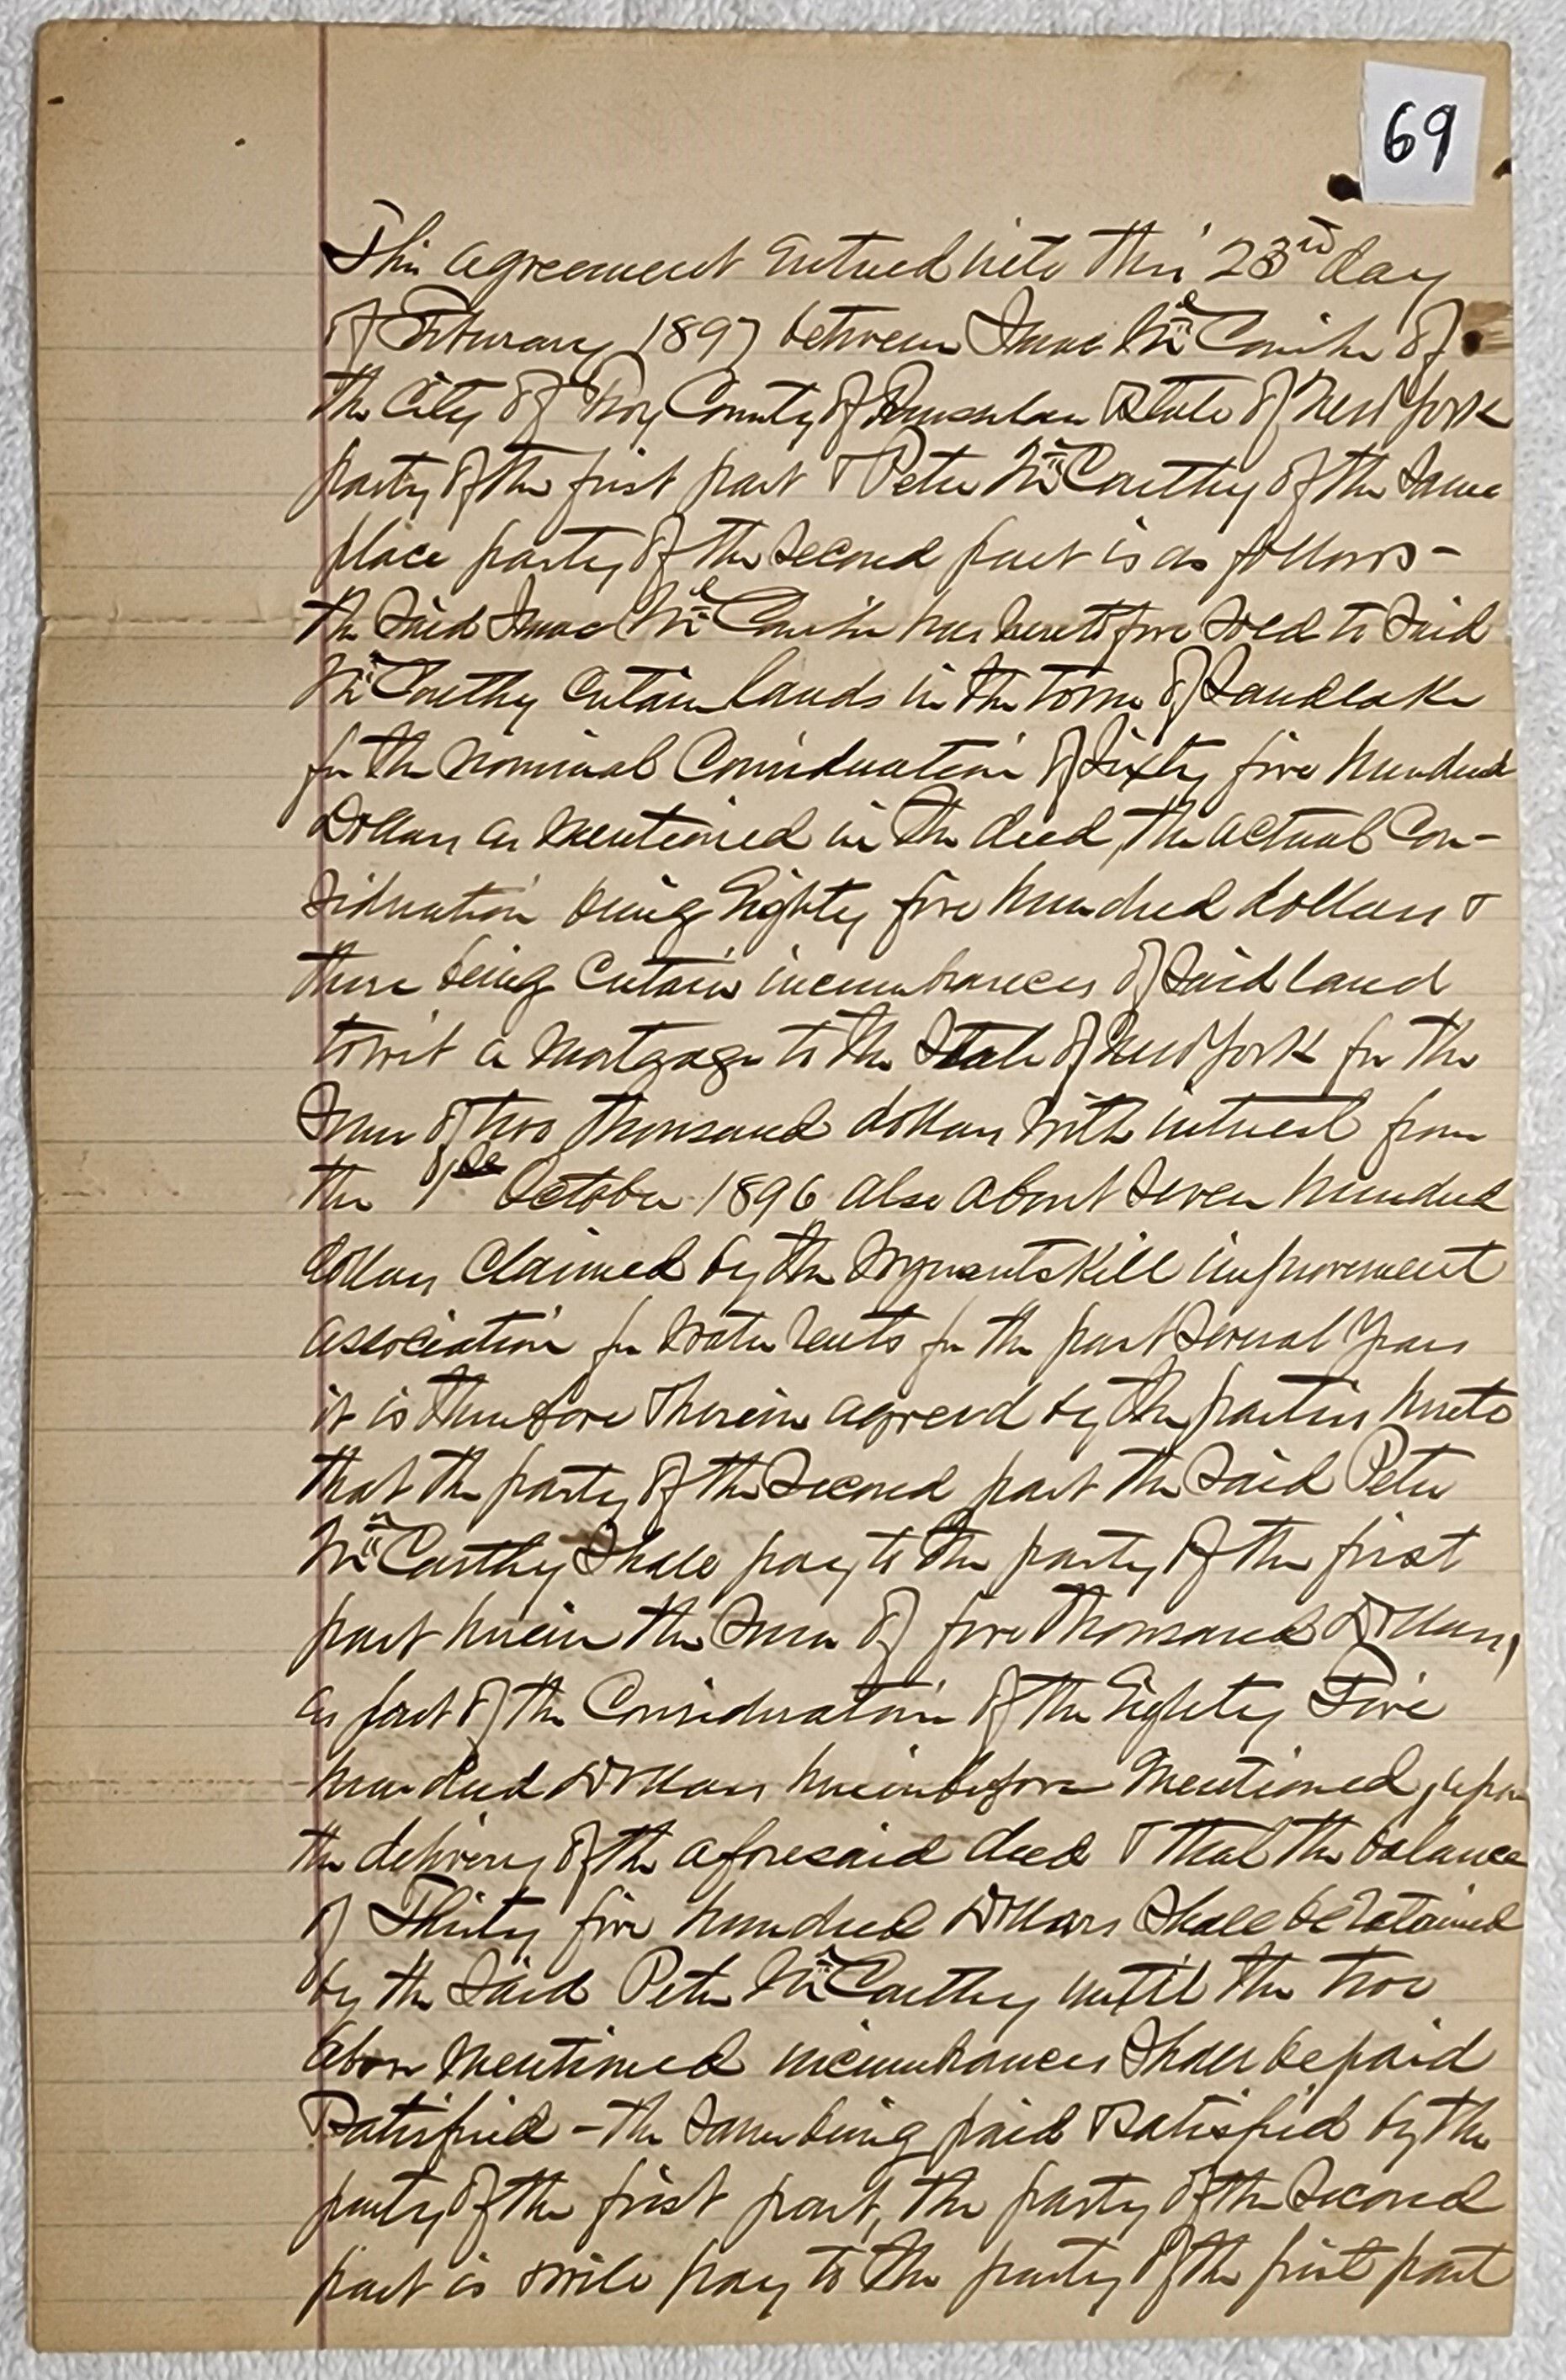 69
This agreement entered into this 23rd day
of February 1897 between Isaac McConihe of
the City of Troy County of Rensselaer & State of New York
party of the first part & Peter McCarthy of the same
place party of the second part is as follows -
the said Isaac McConihe has heretofore sold to said
McCarthy certain lands in the town of Sandlake
for the nominal consideration of Sixty five hundred
Dollars as mentioned in the deed, the actual con-
sideration being Eighty five hundred dollars &
there being certain incumbrances of said land
towit a mortgage to the State of New York for the
sum of two thousand dollars with interest from
the 1st October 1896 also about seven hundred
dollars claimed by the Wynantskill improvement
association for water rents for the past several years
it is therefore & herein agreed by the parties hereto
that the party of the second part the said Peter
McCarthy shall pay to the party of the first
part herein the sum of five thousand Dollars,
as part of the consideration of the Eighty Five
hundred Dollars hereinbefore mentioned, upon
the delivery of the aforesaid deed & that the balance
of Thirty five hundred Dollars shall be retained
by the said Peter McCarthy until the two
above mentioned incumbrances shall be paid
& satisfied - the same being paid & satisfied by the
party of the first part, the party of the second
part is & will pay to the party of the first part